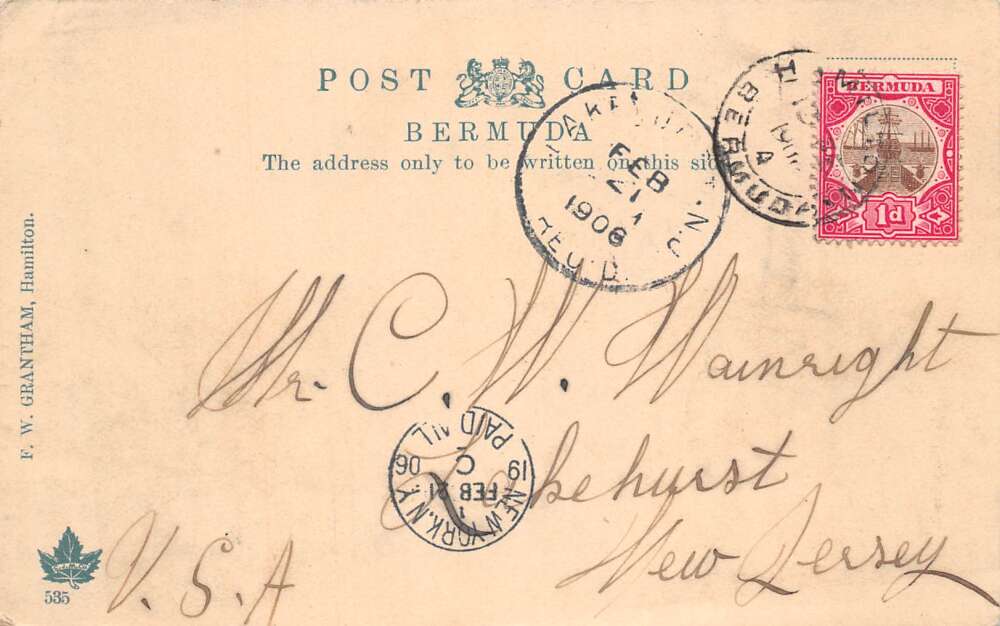 POST CARD
BERMUDA
The address only to be written on this side
BERMUDA
1d
BERMUDA
FEB
21
1906
REC'D.
N.J.
Mr. C. W. Wainright
Lakehurst
New Jersey
U.S.A
NEW YORK, N.Y.
FEB 21
19 06
C
PAID ALL
F. W. GRANTHAM, Hamilton.
535